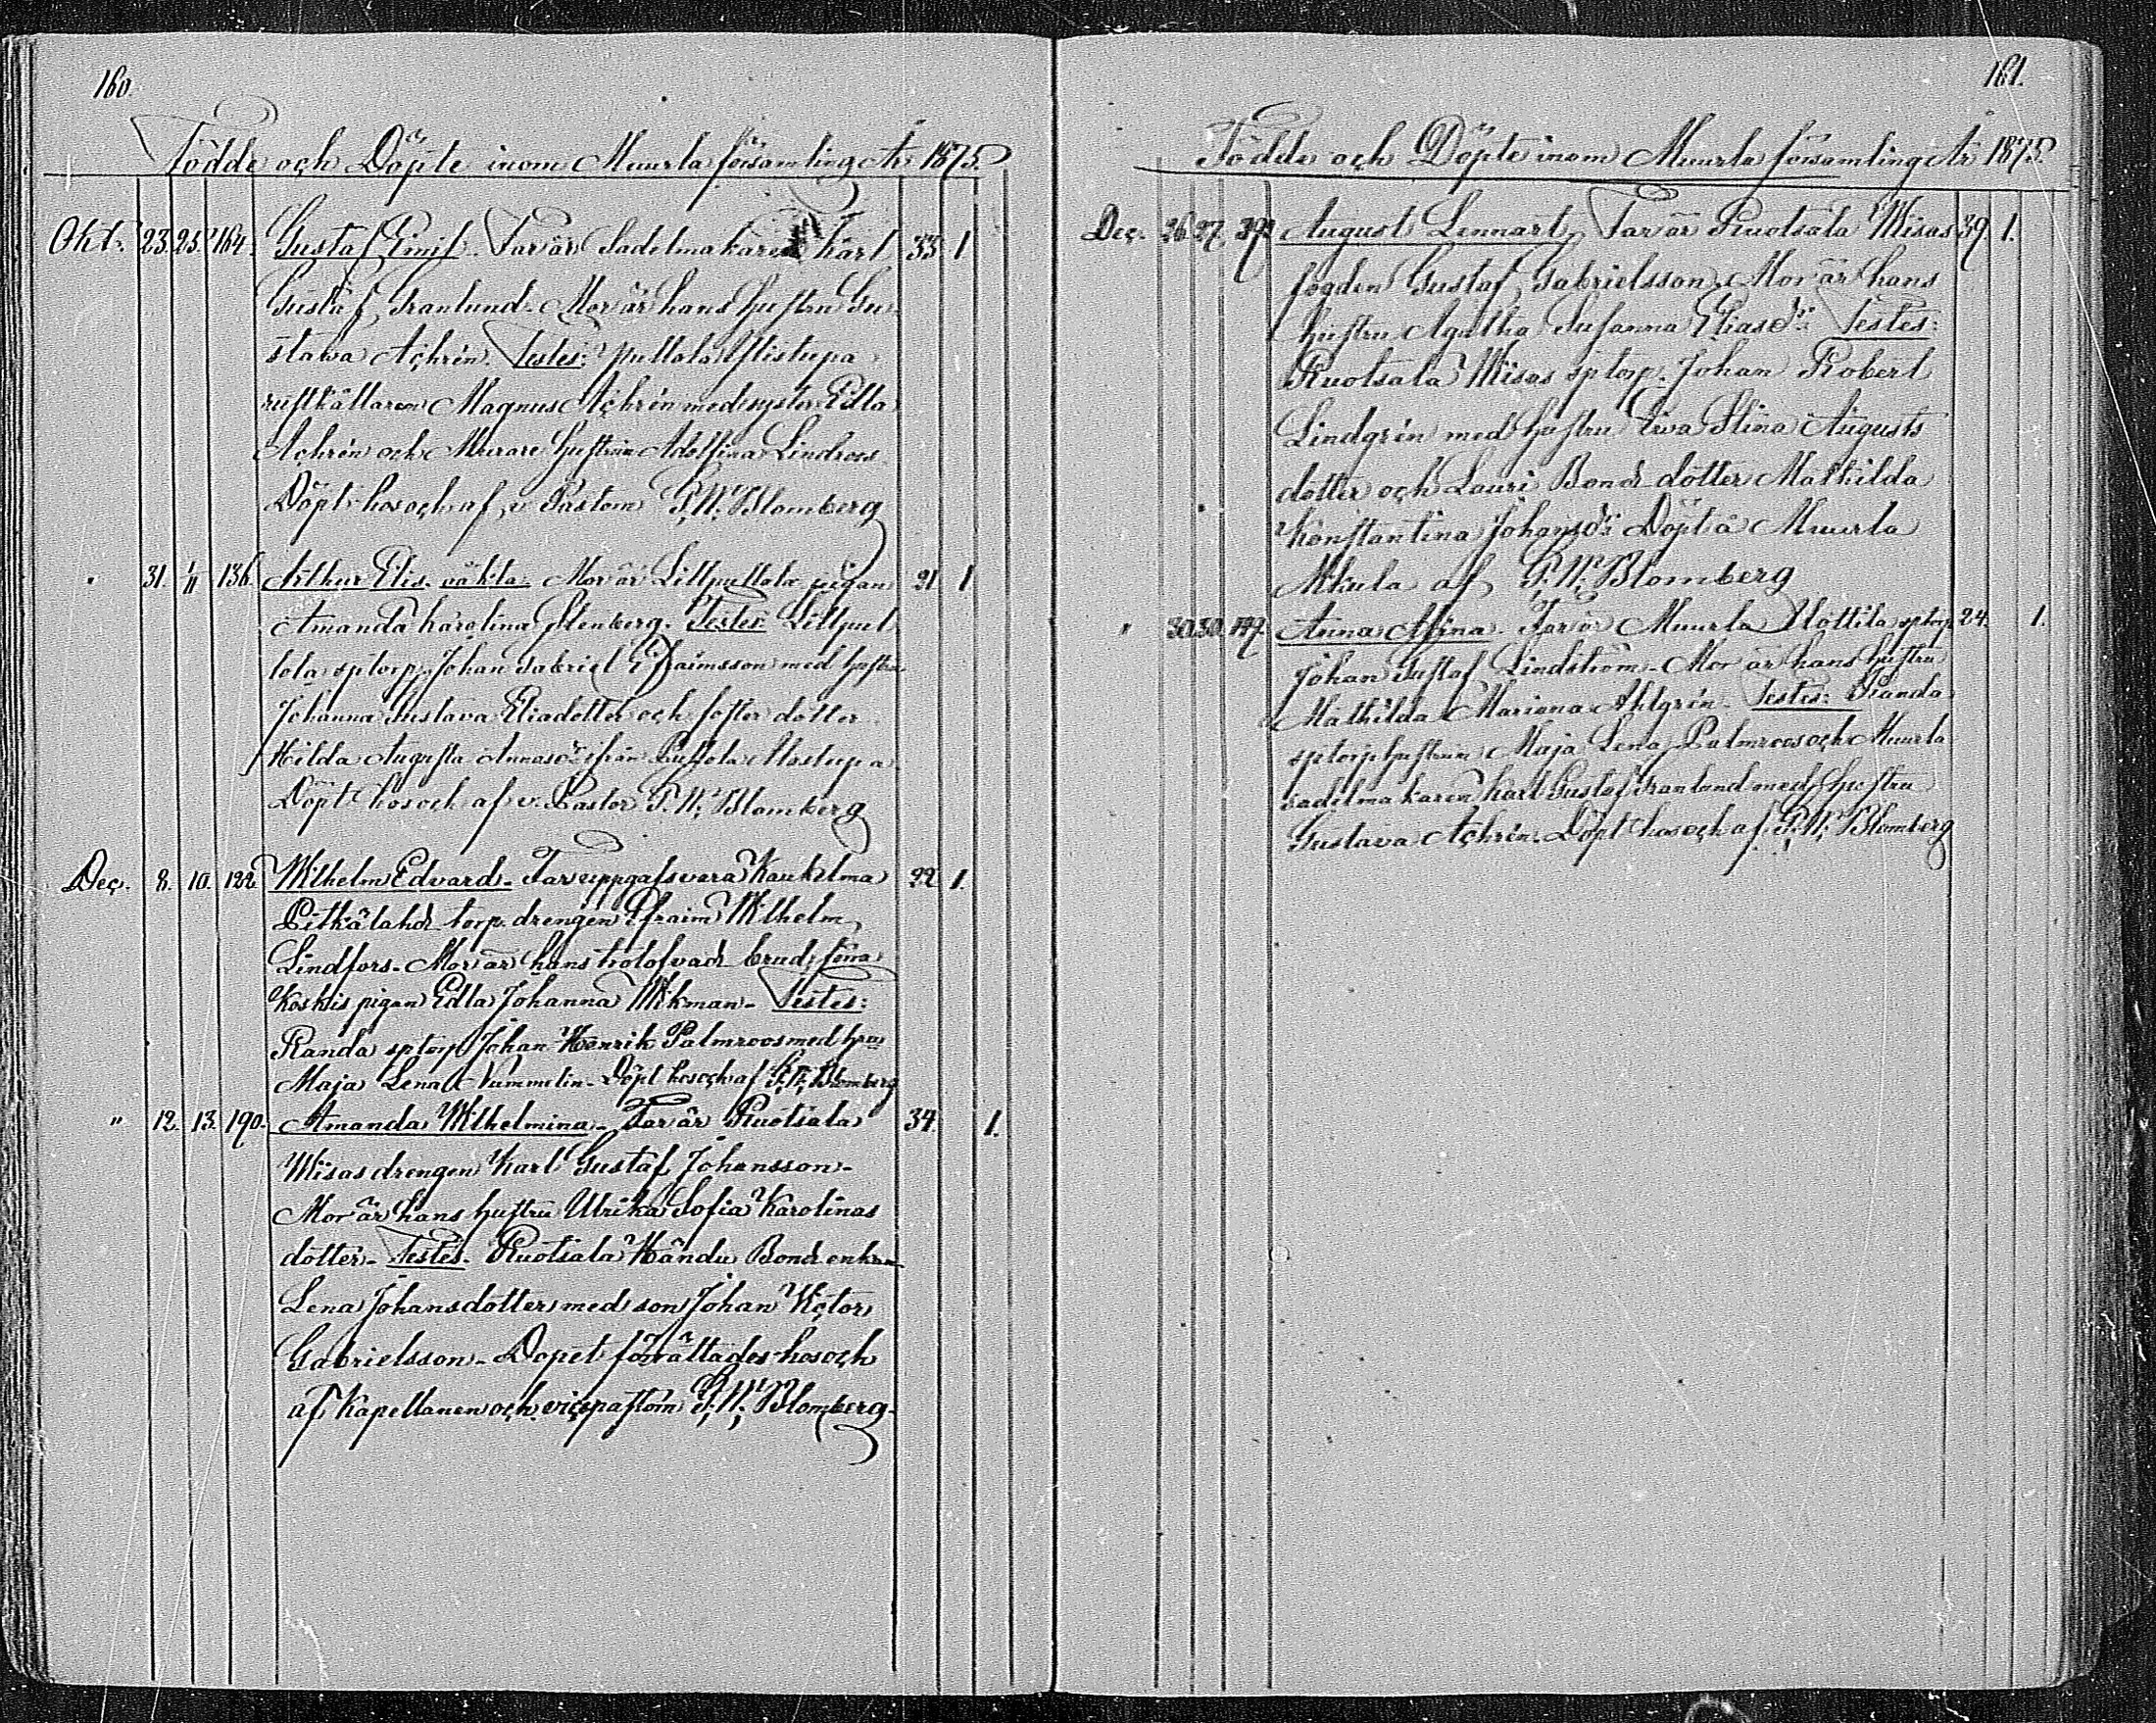 160.
Födde och Döpte inom Muurla församling År 1875.
Okt. 23. 25. 164. Gustaf Emil. Far är Sadelmakaren Karl 33. 1
Gustaf Granlund. Mor är hans hustru Gu-
stava Achrén. Testes: Pullola
rusthållaren Magnus Achrén med syster Edla
Achrén och Murare hustrun Adolfina Lindroos
Döpt hos och af v. Pastorn F. W. Blomberg
" 31. 1/11 136. Arthur Elis. oäkta. Mor är Lillpullola pigan 21. 1
Amanda Karolina Stenberg. Testes: Lillpul
lola sptorp. Johan Gabriel Efraimsson med hustru
Johanna Gustava Eliadotter och foster dotter
Hilda Augusta från Pullola
Döpt hos och af v. Pastor F. W. Blomberg
Dec. 8. 10. 122. Wilhelm Edvard. Far uppgafs vara Kaukelma 22. 1.
Pitkälahd torp. drengen Efraim Wilhelm
Lindfors. Mor är hans trolofvad brud,
Koskis pigan Edla Johanna Wikman. Testes:
Randa sptorp Johan Henrik Palmroos med hru
Maja Lena Nummelin. Döpt hos och af F. W. Blomberg
" 12. 13. 190. Amanda Wilhelmina. Far är Ruotsala 34. 1.
Wisas drengen Karl Gustaf Johansson.
Mor är hans hustru Ulrika Sofia Karolinas
dotter. Testes. Ruotsala Händu Bond enkan
Lena Johansdotter med son Johan Victor
Gabrielsson. Dopet förrättades hos och
af Kapellanen och vicepastorn F. W. Blomberg.
161.
Födde och Döpte inom Muurla församling År 1875.
Dec. 26. 27. August Lennart. Far är Ruotsala Wisas 39. 1.
fogden Gustaf Gabrielsson. Mor är hans
hustru Agatha Susanna Eliasdr. Testes:
Ruotsala Wisas sptorp. Johan Robert
Lindgrén med hustru Ewa Stina Augusts
dotter och Lauri Bond dotter Mathilda
Konstantina Johansdr. Döpt å Muurla
Nikula af F. W. Blomberg
" 30. 30. 147. Anna Alfina. Far är Muurla Uottila sptorp. 24. 1.
Johan Gustaf Lindström. Mor är hans hustru
Mathilda Mariana Ahlgrén. Testes: Randa
sptorp hustrun Maja Lena Palmroos och Muurla
sadelmakaren Karl Gustaf Granlund med hustru
Gustava Achrén. Döpt hos och af F. W. Blomberg